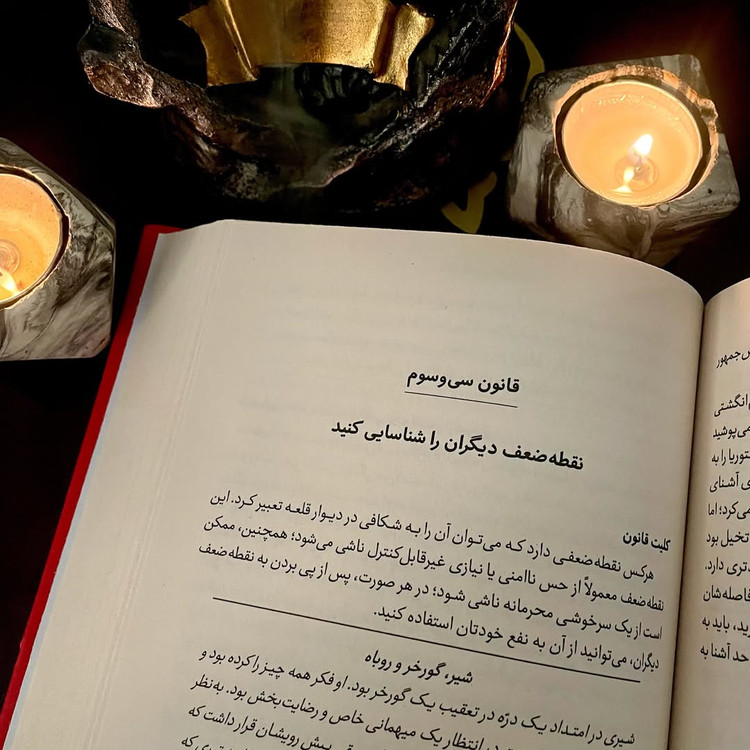 قانون سی‌وسوم
نقطه‌ضعف دیگران را شناسایی کنید
کلیت قانون
هرکس نقطه‌ضعفی دارد که می‌توان آن را به شکافی در دیوار قلعه تعبیر کرد. این
نقطه‌ضعف معمولاً از حس ناامنی یا نیازی غیرقابل‌کنترل ناشی می‌شود؛ همچنین، ممکن
است از یک سرخوشی محرمانه ناشی شود؛ در هر صورت، پس از پی بردن به نقطه‌ضعف
دیگران، می‌توانید از آن به نفع خودتان استفاده کنید.
شیر، گورخر و روباه
شیری در امتداد یک درّه در تعقیب یک گورخر بود. او فکر همه چیز را کرده بود و
در انتظار یک میهمانی خاص و رضایت‌بخش بود. به‌نظر
پیش رویشان قرار داشت که
انگشتی
می‌پوشید
ستوریا را به
ی آشنای
می‌کرد؛ اما
تخیل بود
تری دارد.
فاصله‌شان
باید به
حد آشنا به